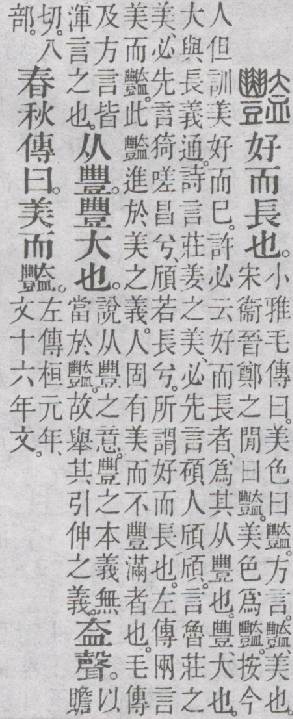 豓好而長也。
小雅毛傳曰。美色曰豔。方言。豔、美也。
宋衞晉鄭之閒曰豔。美色爲豔。按今
人但訓美好而巳。許必云好而長者、爲其从豐也。豐大也。
大與長義通。詩言莊姜之美、必先言碩人頎頎。言魯莊之
美、必先言猗嗟昌兮、頎若長兮。所謂好而長也。左傳兩言
美而豔。此豔進於美之義。人固有美而不豐滿者也。毛傳
及方言皆
渾言之也。
从豐。豐大也。
說从豐之意。豐之本義無
當於豔。故舉其引伸之義。
盇聲。
以
贍
切。八
部。
春秋傳曰。美而豔。
左傳桓元年、
文十六年文。